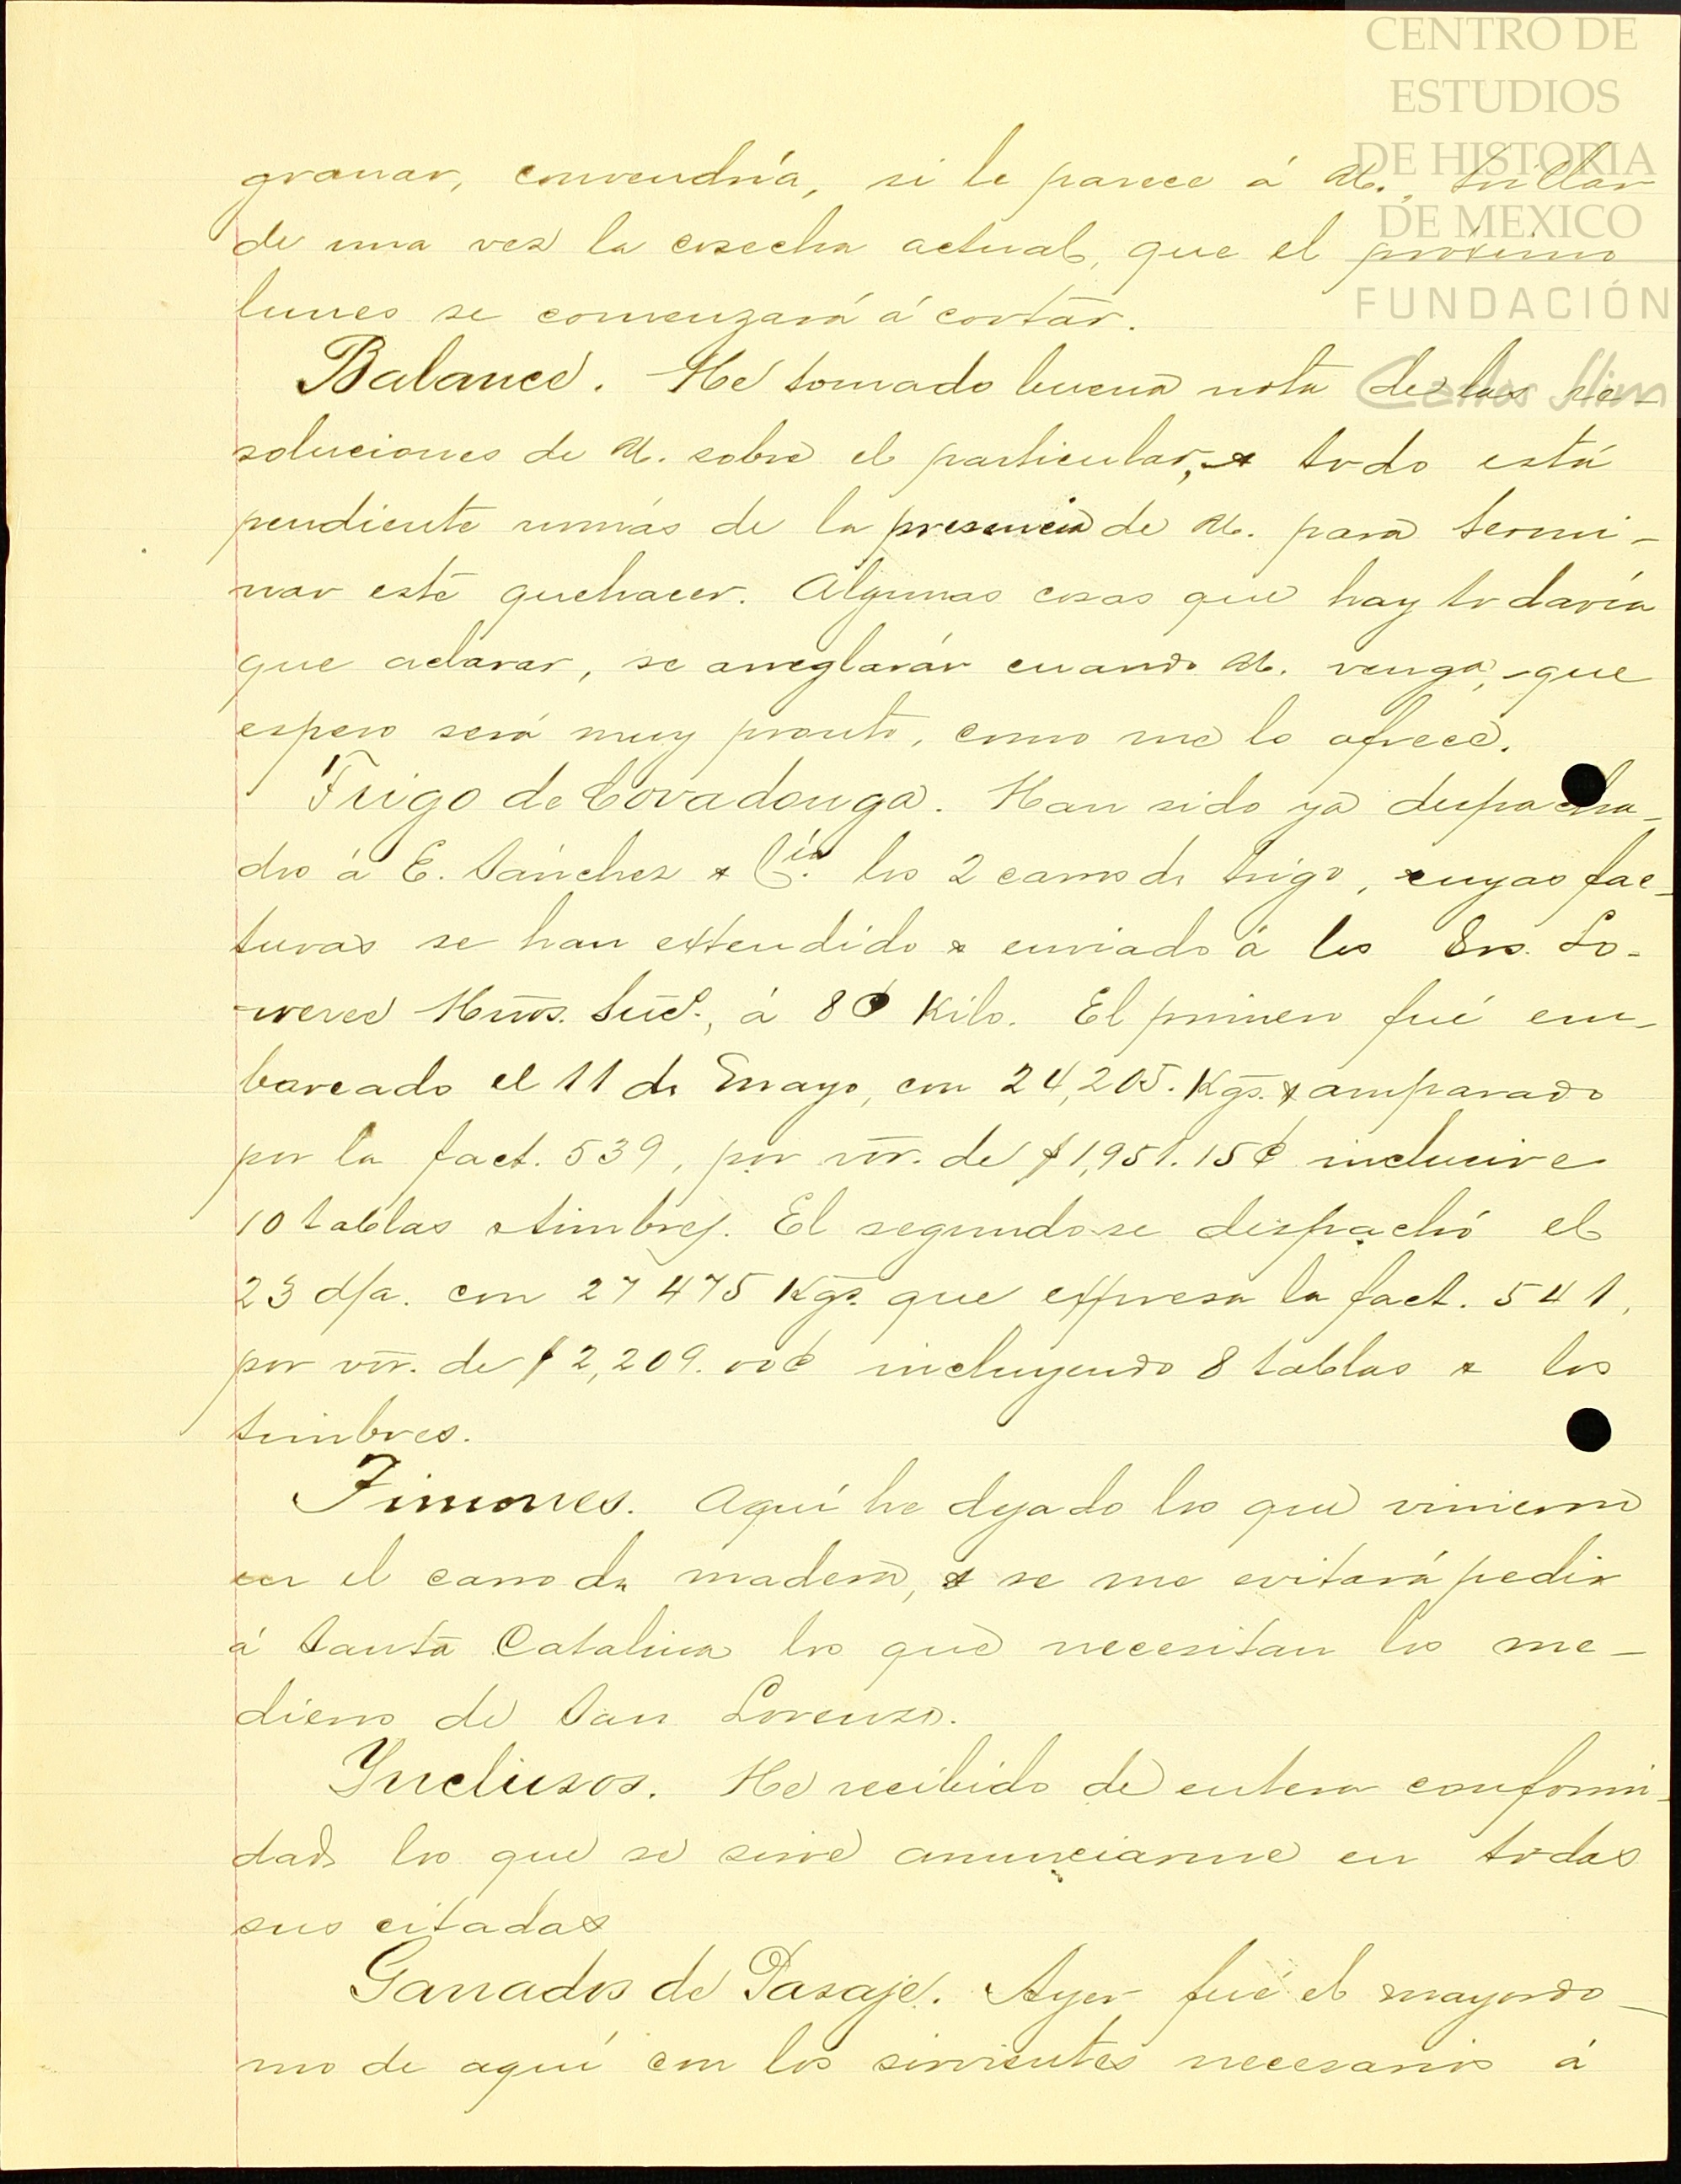 CENTRO DE
ESTUDIOS
DE HISTORIA
DE MEXICO
FUNDACIÓN
Carlos Slim
granar, convendría, si le parece á U., trillar
de una vez la cosecha actual, que el próximo
lunes se comenzará á cortar.
Balance. He tomado buena nota de las re-
soluciones de U. sobre el particular, & todo está
pendiente nomás de la presencia de U. para termi-
nar este quehacer. Algunas cosas que hay todavía
que aclarar, se arreglarán cuando U. venga, que
espero será muy pronto, como me lo ofrece.
Trigo de Covadonga. Han sido ya despacha-
dos á E. Sánchez & Cía. los 2 carros de trigo, cuyas fac-
turas se han extendido & enviado á los Srs. Lo-
weree Hnos. Suc., á 8 ¢ Kilo. El primero fué em-
barcado el 11 de Mayo, con 24,205. Kgs. & amparado
por la fact. 539, por vor. de $1,951.15¢ inclucive
10 tablas & timbres. El segundo se despachó el
23 d/a. con 27 475 Kgs. que expresa la fact. 541,
por vor. de $2,209.00¢ incluyendo 8 tablas & los
timbres.
Timones. Aquí he dejado los que vinieron
en el carro de madera, & se me evitará pedir
á Santa Catalina los que necesitan los me-
dieros de San Lorenzo.
Inclusos. He recibido de entera conformi-
dad, los que se sirve anunciarme en todas
sus citadas
Ganados de Pasaje. Ayer fué el mayordo-
mo de aquí con los sirvientes necesarios á